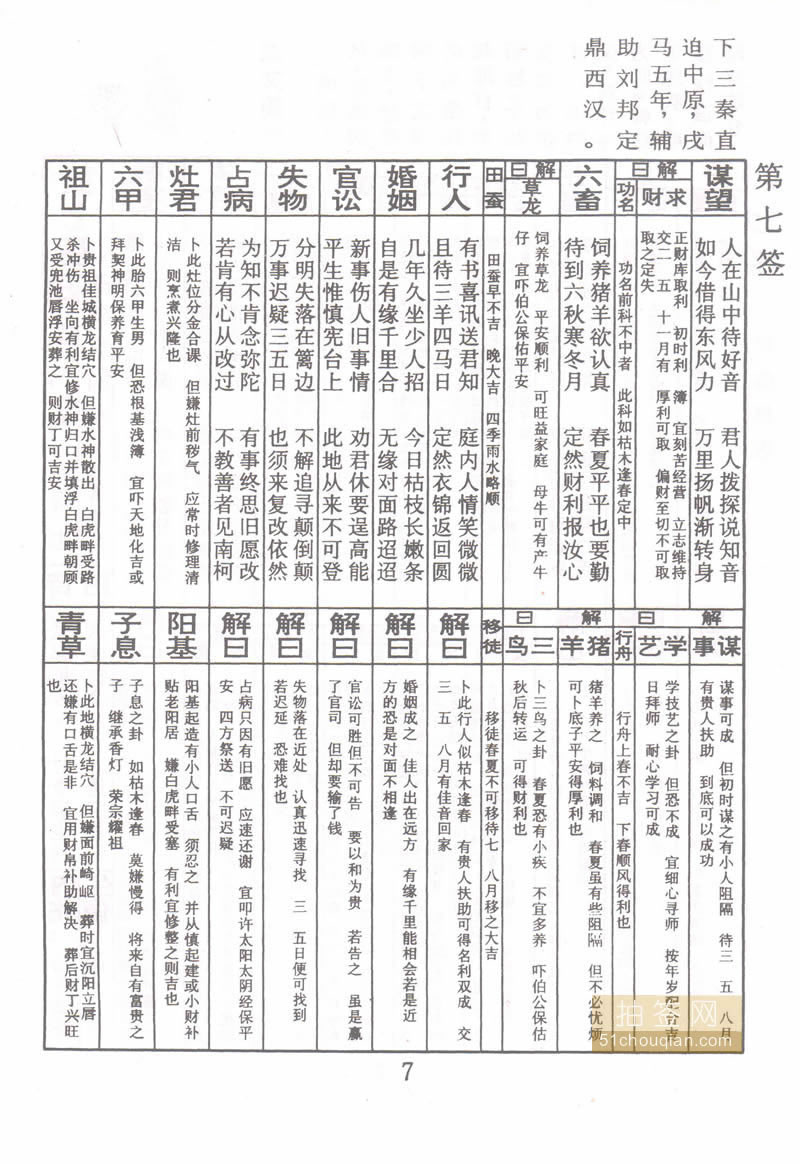 下三秦直
迫中原,戌
马五年,辅
助刘邦定
鼎西汉。
第七签
谋望
人在山中待好音 君人拨探说知音
如今借得东风力 万里扬帆渐转身
解曰
求财
正财库取利 初时利 簿 宜刻苦经营 立志维持
交二 五 十一月有 厚利可取 偏财至切不可取
取之定失
功名
功名前科不中者 此科如枯木逢春定中
六畜
饲养猪羊欲认真 春夏平平也要勤
待到六秋寒冬月 定然财利报汝心
解曰
草龙
饲养草龙 平安顺利 可旺益家庭 母牛可有产牛
仔 宜吓伯公保佑平安
田蚕
田蚕早不吉 晚大吉 四季雨水略顺
行人
有书喜讯送君知 庭内人情笑微微
且待三羊四马日 定然衣锦返回圆
婚姻
几年久坐少人招 今日枯枝长嫩条
自是有缘千里合 无缘对面路迢迢
官讼
新事伤人旧事情 劝君休要逞高能
平生惟慎宪台上 此地从来不可登
失物
分明失落在篱边 不解追寻颠倒颠
万事迟疑三五日 也须来复改依然
占病
为知不肯念弥陀 有事终思旧愿改
若肯有心从改过 不教善者见南柯
灶君
卜此灶位分金合课 但嫌灶前秽气 应常时修理清
洁 则烹煮兴隆也
六甲
卜此胎六甲生男 但恐根基浅簿 宜吓天地化吉或
拜契神明保养育平安
祖山
卜贵祖佳城横龙结穴 但嫌水神散出 白虎畔受路
杀冲伤 坐向有利宜修水神归口并填浮白虎畔朝顾
又受兜池唇浮安葬之 则财丁可吉安
解曰
谋事
谋事可成 但初时谋之有小人阻隔 待三 五 八月
有贵人扶助 到底可以成功
学艺
学技艺之卦 但恐不成 宜细心寻师 按年岁配合吉
日拜师 耐心学习可成
行舟
行舟上春不吉 下春顺风得利也
解曰
猪羊
猪羊养之 饲料调和 春夏虽有些阻隔 但不必忧烦
可卜底子平安得厚利也
三鸟
卜三鸟之卦 春夏恐有小疾 不宜多养 吓伯公保估
秋后转运 可得财利也
移徒
移徒春夏不可移待七 八月移之大吉
解曰
卜此行人似枯木逢春 有贵人扶助可得名利双成 交
三 五 八月有佳音回家
解曰
婚姻成之 佳人出在远方 有缘千里能相会若是近
方的恐是对面不相逢
解曰
官讼可胜但不可告 要以和为贵 若告之 虽是赢
了官司 但却要输了钱
解曰
失物落在近处 认真迅速寻找 三 五日便可找到
若迟延 恐难找也
解曰
占病只因有旧愿 应速还谢 宜叩许太阳太阴经保平
安 四方祭送 不可迟疑
阳基
阳基起造有小人口舌 须忍之 并从慎起建或小财补
贴老阳居 嫌白虎畔受塞 有利宜修整之则吉也
子息
子息之卦 如枯木逢春 莫嫌慢得 将来自有富贵之
子 继承香灯 荣宗耀祖
青草
卜此地横龙结穴 但嫌面前崎岖 葬时宜沉阳立唇
还嫌有口舌是非 宜用财帛补助解决 葬后财丁兴旺
也
拍签网
51chouqian.com
7